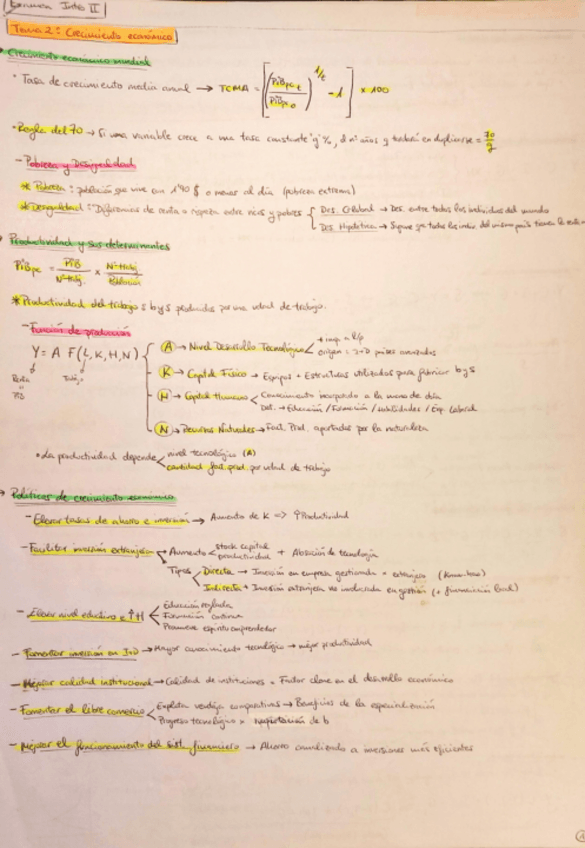 Economía Intro II
Tema 2: Crecimiento económico
Crecimiento económico mundial
• Tasa de crecimiento media anual → TCMA = [(PiBpc t / PiBpc 0)^1/t - 1] x 100
• Regla del 70 → Si una variable crece a una tasa constante "g"%, el nº años q tardará en duplicarse = 70/g
- Pobreza y Desigualdad
* Pobreza: población que vive con 1'90 $ o menos al día (pobreza extrema)
* Desigualdad: "Diferencias de renta o riqueza entre ricos y pobres
Des. Global → Des. entre todos los individuos del mundo
Des. Hipotética → Supone que todos los indiv. del mismo país tienen la
Productividad y sus determinantes
PiBpc = PiB / Nº Trabj. x Nº Trabj / Población
* Productividad del trabajo: b y s producidos por una udad de trabajo.
- Función de producción
Y = A F(L, K, H, N)
Renta Trabajo
PiB
A → Nivel Desarrollo Tecnológico
origen = I+D países avanzados
K → Capital Físico → Equipos + Estructuras utilizados para fabricar b y s
H → Capital Humano
Conocimiento incorporado a la mano de obra
Det. → Educación / Formación / Habilidades / Exp. Laboral
N → Recursos Naturales → Fact. Prod. aportados por la naturaleza
• La productividad depende
nivel tecnológico (A)
cantidad fact. prod. por udad de trabajo
Políticas de crecimiento económico
- Elevar tasas de ahorro e inversión → Aumento de K => ↑Productividad
- Facilitar inversión extranjera
Aumento stock capital productividad + Absorción de tecnología
Tipos
Directa → Inversión en empresa gestionada x extranjero (Know-how)
Indirecta → Inversión extranjera no involucrada en gestión (+ financiación local)
- Elevar nivel educativo x ↑H
Educación reglada
Formación continua
Promueve espíritu emprendedor
- Fomentar inversión en I+D → Mayor conocimiento tecnológico → mejor productividad
- Mejorar calidad institucional → Calidad de instituciones = Factor clave en el desarrollo económico
- Fomentar el libre comercio
Explota ventaja comparativas → Beneficios de la especialización
Progreso tecnológico x importación de b
- Mejorar el funcionamiento del sist. financiero → Ahorro canalizado a inversiones más eficientes